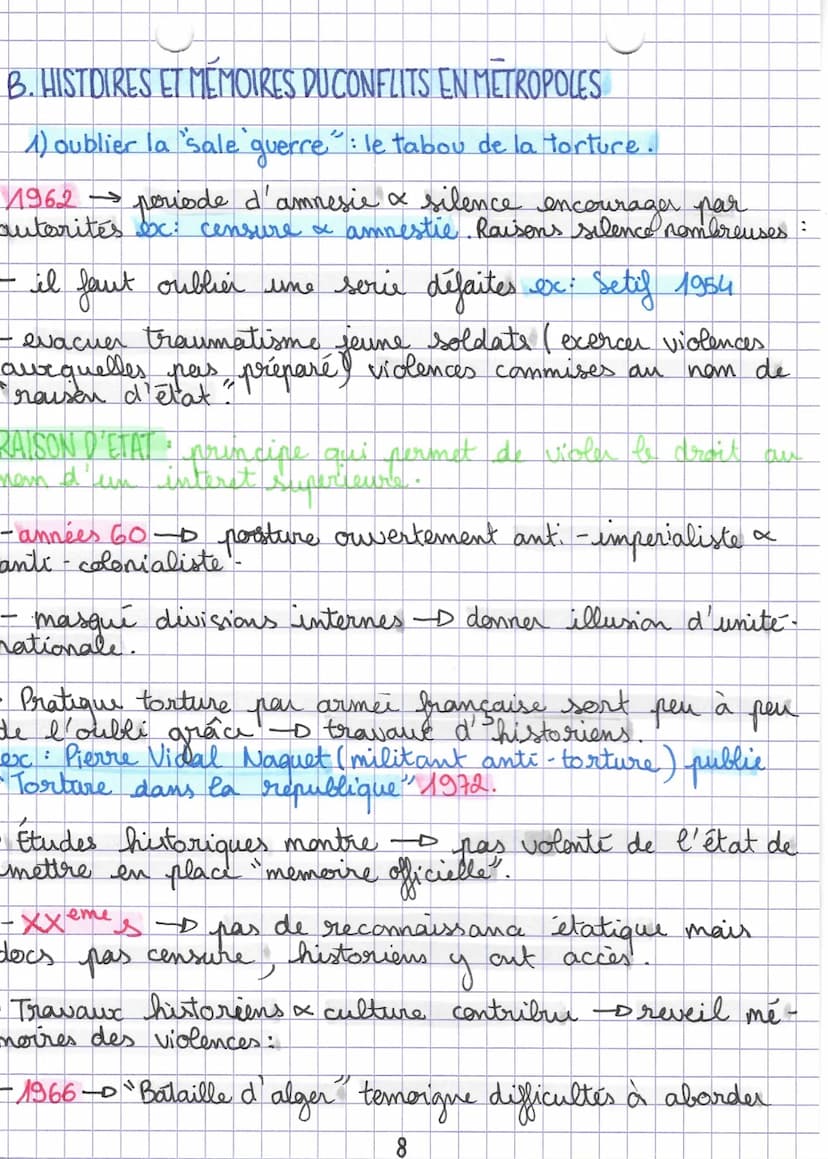 B. HISTOIRES ET MÉMOIRES DU CONFLITS EN MÉTROPOLES
1) oublier la "sale guerre" : le tabou de la torture.
1962 → periode d'amnesie ∝ silence encourager par
autorités ex: censure ∝ amnestie. Raisons silence nombreuses :
- il faut oublier une serie défaites ex: Setif 1954
- evacuer traumatisme jeune soldats (exercer violences
auxquelles pas préparé) violences commises au nom de
"raison d'état".
RAISON D'ETAT : principe qui permet de violer le droit au
nom d'un interet superieure.
- années 60 → posture ouvertement anti-imperialiste ∝
anti-colonialiste.
- masqué divisions internes → donner illusion d'unité-
nationale.
Pratique torture par armée française sont peu à peu
de l'oubli grâce → travaux d'historiens.
ex : Pierre Vidal Naquet (militant anti-torture) publie
"Torture dans la république" 1972.
Études historiques montre → pas volonté de l'état de
mettre en place "memoire officielle".
- XXeme s → pas de reconnaissance étatique mais
docs pas censuré, historiens y ont accès.
Travaux historiens ∝ culture contribue → reveil mé-
moires des violences :
- 1966 → "Bataille d'alger" temoigne difficultés à aborder
8